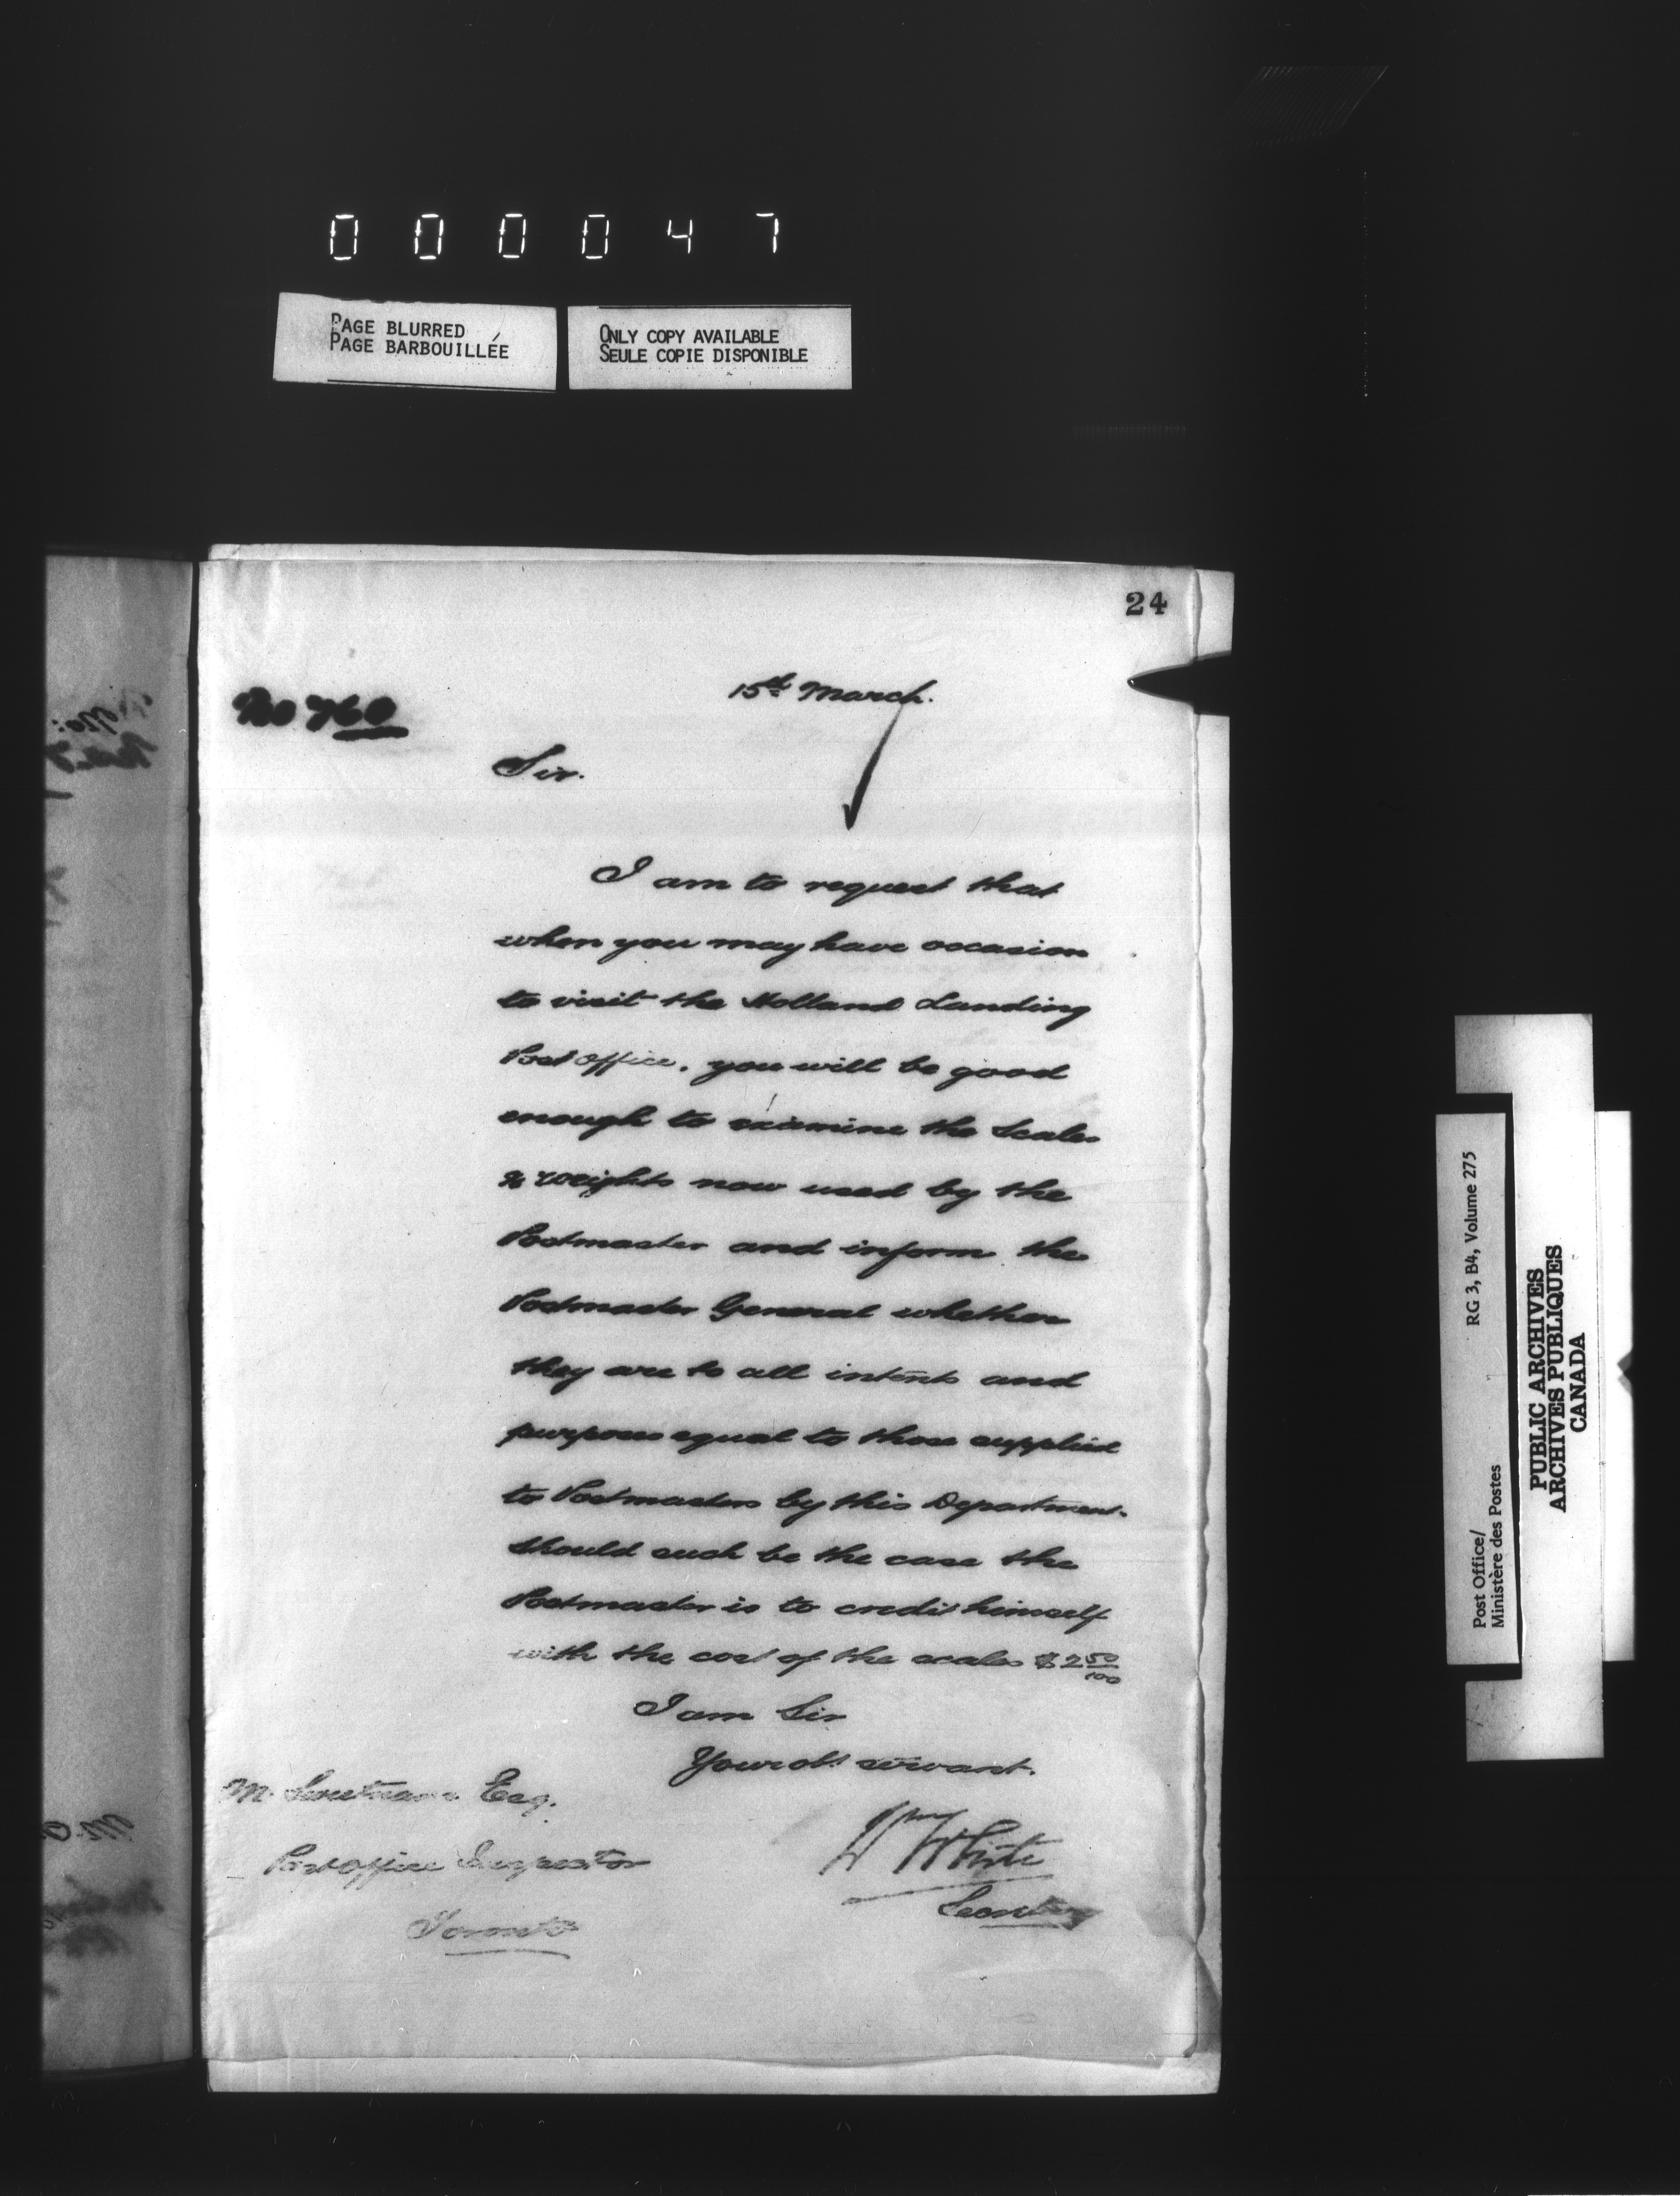 000047
PAGE BLURRED
PAGE BARBOUILLÉE
ONLY COPY AVAILABLE
SEULE COPIE DISPONIBLE
24
No 760
15th March.
Sir.
I am to request that
when you may have occasion
to visit the Holland Landing
Post Office, you will be good
enough to examine the Scales
& Weights now used by the
Postmaster and inform the
Postmaster General whether
they are to all intents and
purposes equal to those supplied
to Postmasters by this Department.
Should such be the case the
Postmaster is to credit himself
with the cost of the scales $2 50/100
I am Sir
Your obt servant.
Wm White
Secretary
M. Sweetnam Esq.
Post Office Inspector
Toronto
Post Office/
Ministère des Postes
RG 3, B4, Volume 275
PUBLIC ARCHIVES
ARCHIVES PUBLIQUES
CANADA